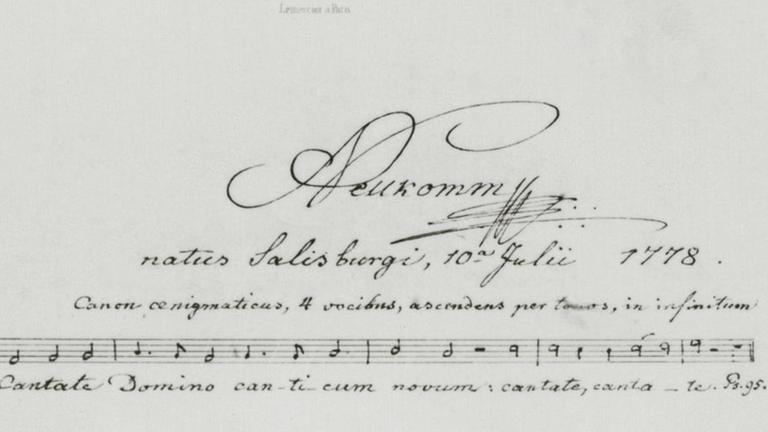 Lemercier à Paris
Neukomm
natus Salisburgi, 10ª Julii 1778.
Canon œnigmaticus, 4 vocibus, ascendens per tonos, in infinitum
Cantate Domino can-ti-cum novum: cantate, canta-te. Ps. 95.